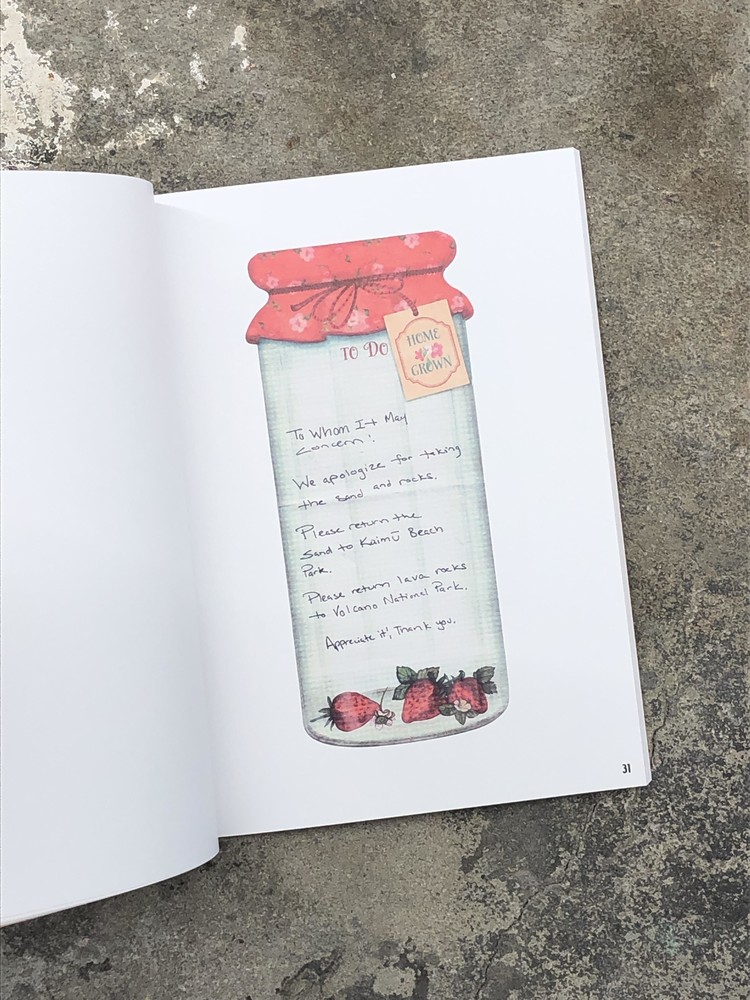 HOME
GROWN
TO DO
To Whom It May
Concern:
We apologize for taking
the sand and rocks.
Please return the
sand to Kaimū Beach
Park.
Please return lava rocks
to Volcano National Park.
Appreciate it! Thank you.
31